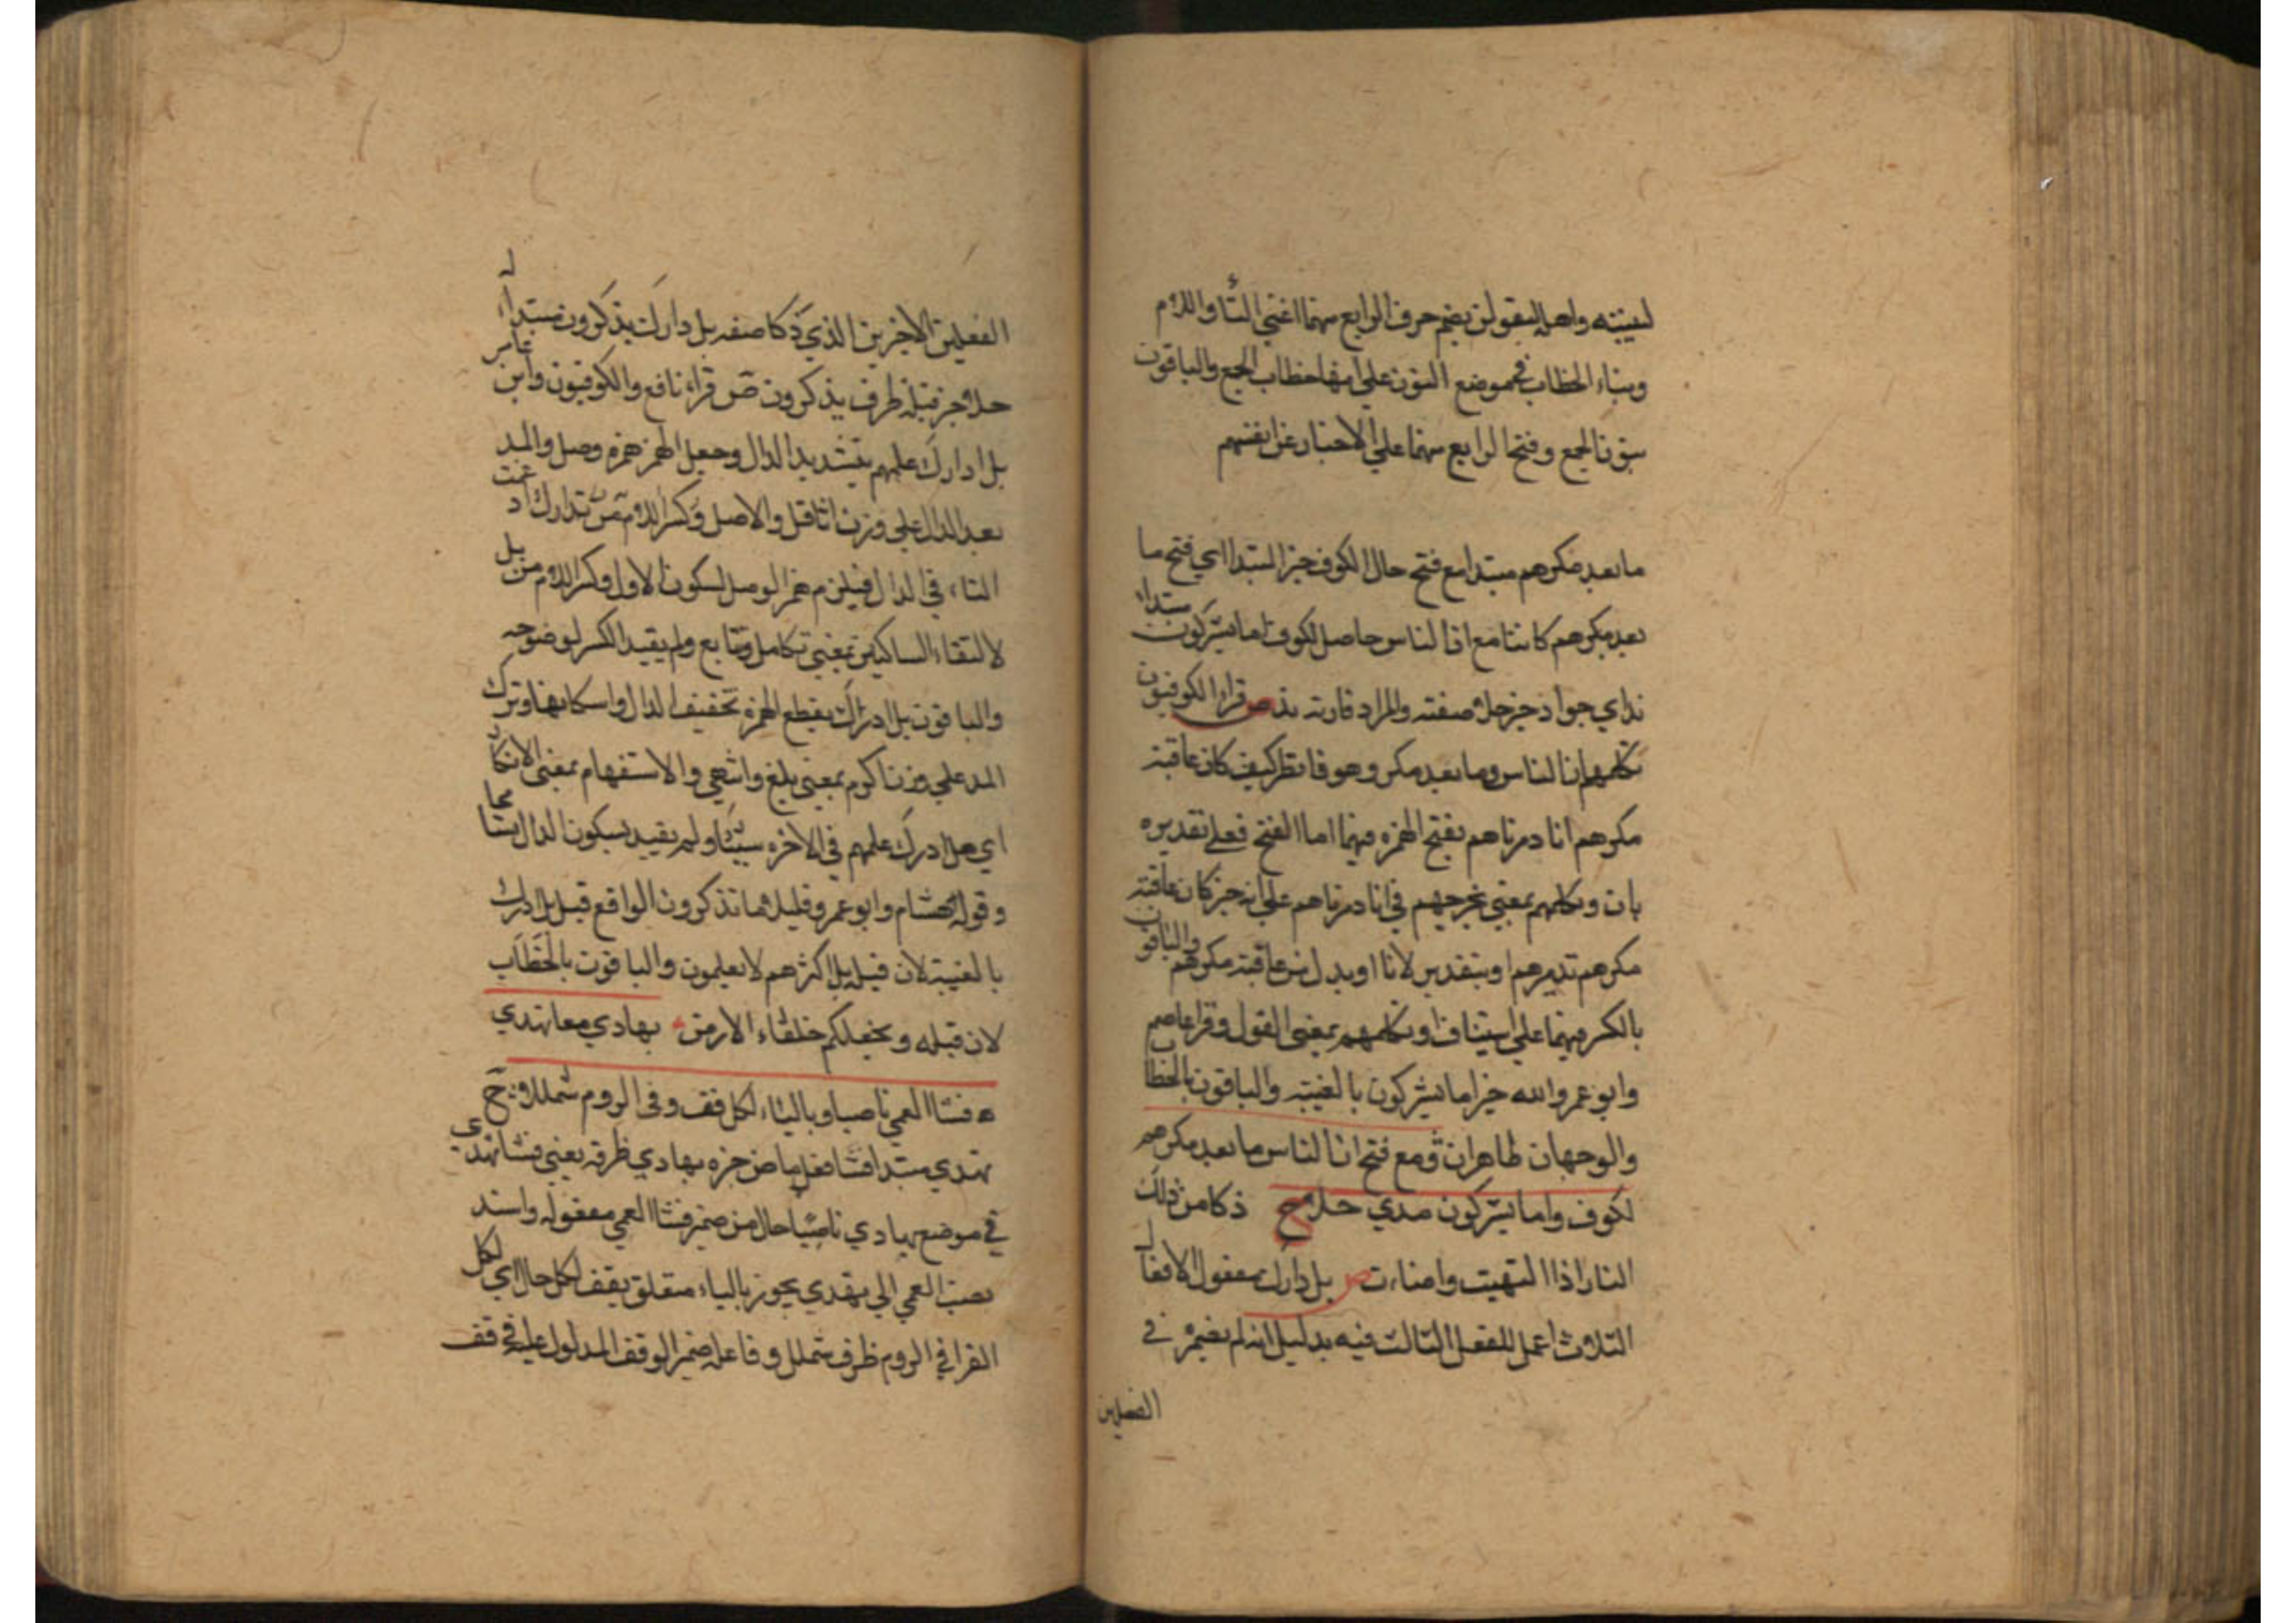 لنبيتنه واهله ليقولن بضم حرف الرابع منهما اعني التا واللام
وبناء الخطاب في موضع النون علي انهما خطاب الجمع والباقون
بنون الجمع وفتح الرابع منهما علي الاخبار عن انفسهم
ما بعد مكرهم مبتدا مع فتح حال لكوف خبر المبتدا اي فتح ما
بعد مكرهم كائنا مع ان الناس حاصل لكوف اما يشركون مبتداء
ند اي جواد خبر حلا صفته والمراد قارئه ند ص قراء الكوفيون
تكلمهم ان الناس وما بعد مكر وهو فانظر كيف كان عاقبة
مكرهم انا دمرناهم بفتح الهمزه فيهما اما الفتح فعلي تقديره
بان وتكلمهم بمعني تجرحهم في انا دمرناهم علي انه خبر كان عاقبة
مكرهم تدميرهم او بتقدير لانا او بدل من عاقبة مكرهم والباقون
بالكسر فيهما علي استيناف او تكلمهم بمعني القول وقرا عاصم
وابو عمرو الله خير اما يشركون بالغيبة والباقون بالخطاب
والوجهان ظاهران ومع فتح ان الناس ما بعد مكرهم
لكوف واما يشركون ندي حلا ح ذكا من ذلك
النار اذا التهبت واضاءت ص بل دارك مفعول الافعال
الثلاث اعمل للفعل الثالث فيه بدليل انه لم يضمر في
الفعلين
الفعلين الاخرين الذي ذكا صفه بل دارك يذكرون مبتداء له
حلا خبر قبله ظرف يذكرون ص قراء نافع والكوفيون وابن عامر
بل ادارك علمهم بتشديد الدال وجعل الهمز همزه وصل والمد
بعد الدال علي وزن اثاقل والاصل وكسر اللام تدارك ادغمت
التاء في الدال فيلزم همز الوصل لسكون الاول وكسر اللام من بل
لالتقاء الساكنين بمعني تكامل وتتابع ولم يقيد الكسر لوضوحه
والباقون بل ادرك بقطع الهمزه تخفيف الدال واسكانها وترك
المد علي وزن اكرم بمعني بلغ وانتهي والاستفهام بمعني الانكار
اي هل ادرك علمهم في الاخره شيئا ولم يقيد بسكون الدال
وقوله هشام وابو عمرو قليلا ما تذكرون الواقع قبل بل ادرك
بالغيبة لان قبله بل اكثرهم لا يعلمون والباقون بالخطاب
لان قبله ويجعلكم خلفاء الارض بهادي معا تهدي
فشا العمي ناصبا وبالياء لكل قف وفي الروم شمللا ح
تهدي مبتدا فشا فعل ماض خبره بهادي ظرفه يعني فشا تهدي
في موضع بهادي ناصبا حال من ضمير فشا العمي مفعوله واسند
نصب العمي الي تهدي يجوز بالياء متعلق بقف لكل حال اي لكل
القرا في الروم ظرف شملل وفاعله ضمير الوقف المدلول عليه في قف